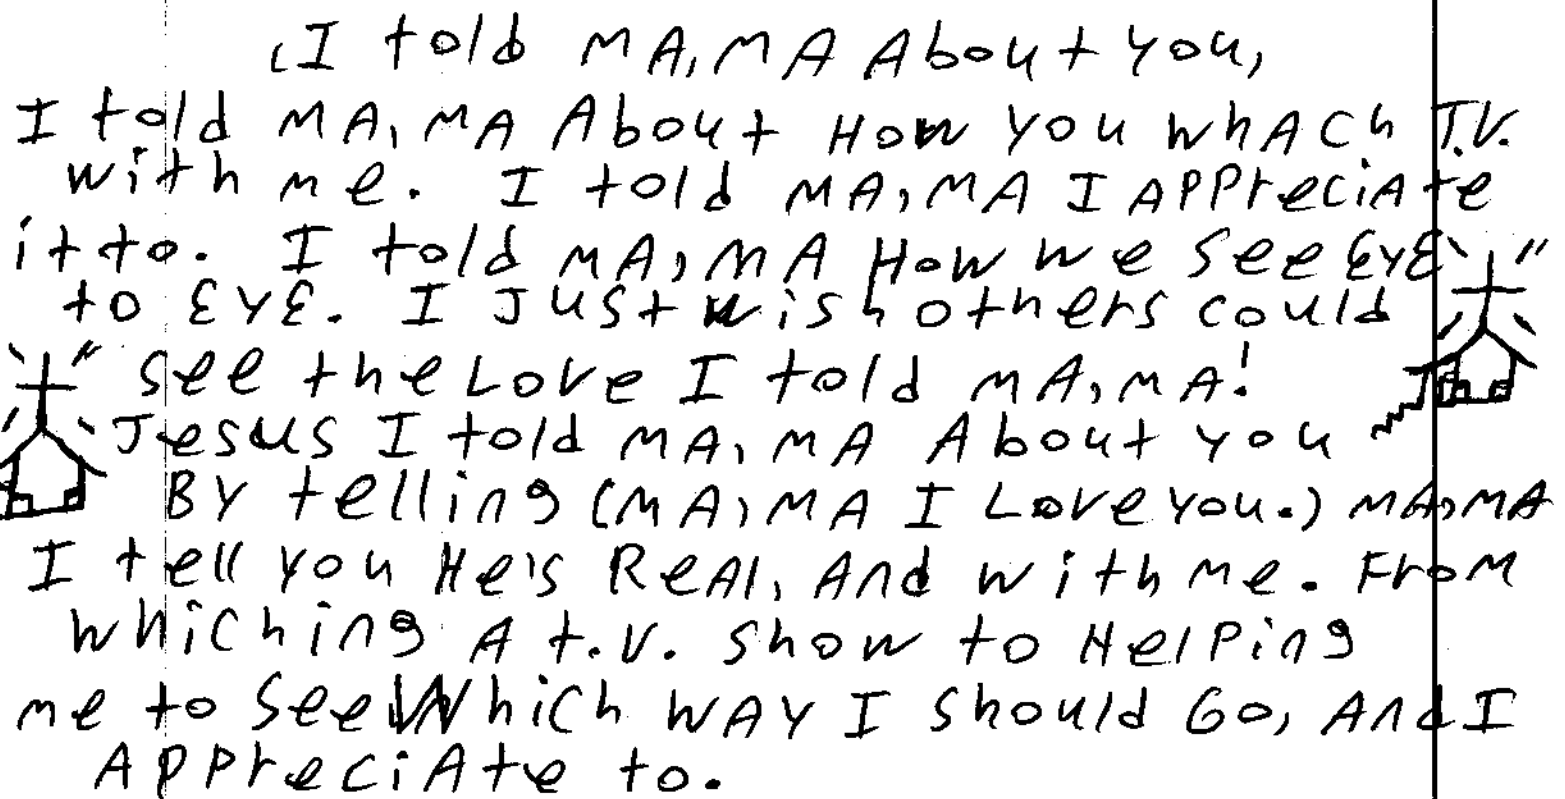 (I told MA,MA About you,
I told MA,MA About How you whACh T.V.
with me. I told MA,MA I APPreciAte
it to. I told MA,MA How we see EYE
to EYE. I JUSt wish others could
see the Love I told MA,MA!
Jesus I told MA,MA About you
BY telling (MA,MA I Love you.) MA,MA
I tell you He's ReAl, And with me. FroM
whiching A t.V. show to HelPing
me to see Which WAY I should Go, And I
APPreciAte to.